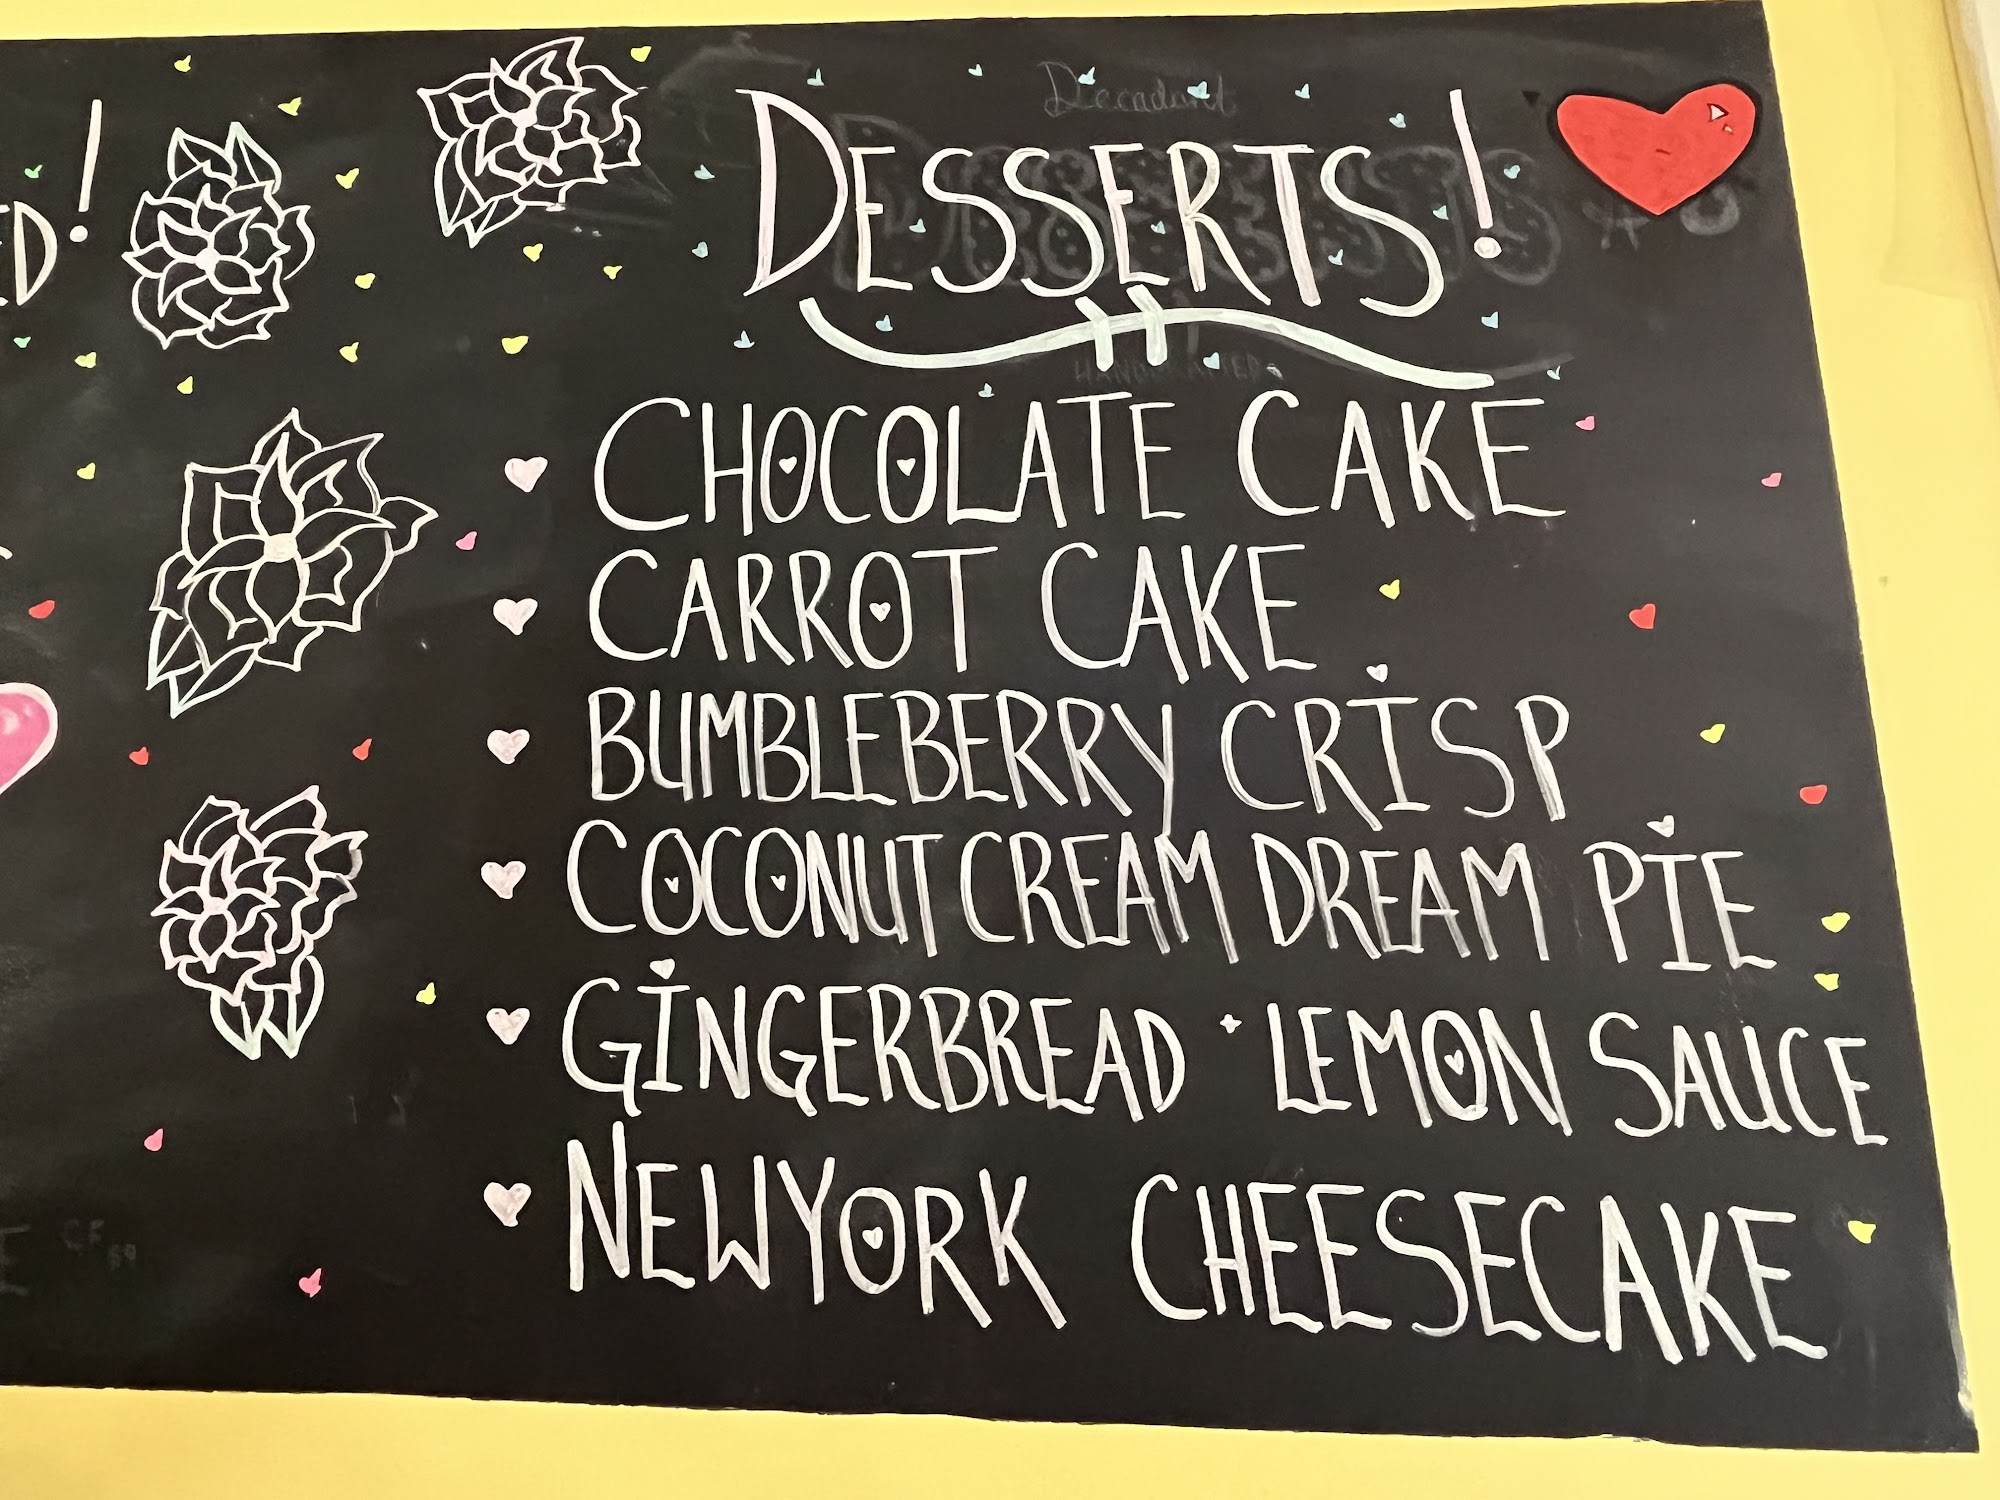 ED!
Decadent
DESSERTS!
HANDCRAFTED
CHOCOLATE CAKE
CARROT CAKE
BUMBLEBERRY CRISP
COCONUT CREAM DREAM PIE
GINGERBREAD + LEMON SAUCE
NEWYORK CHEESECAKE